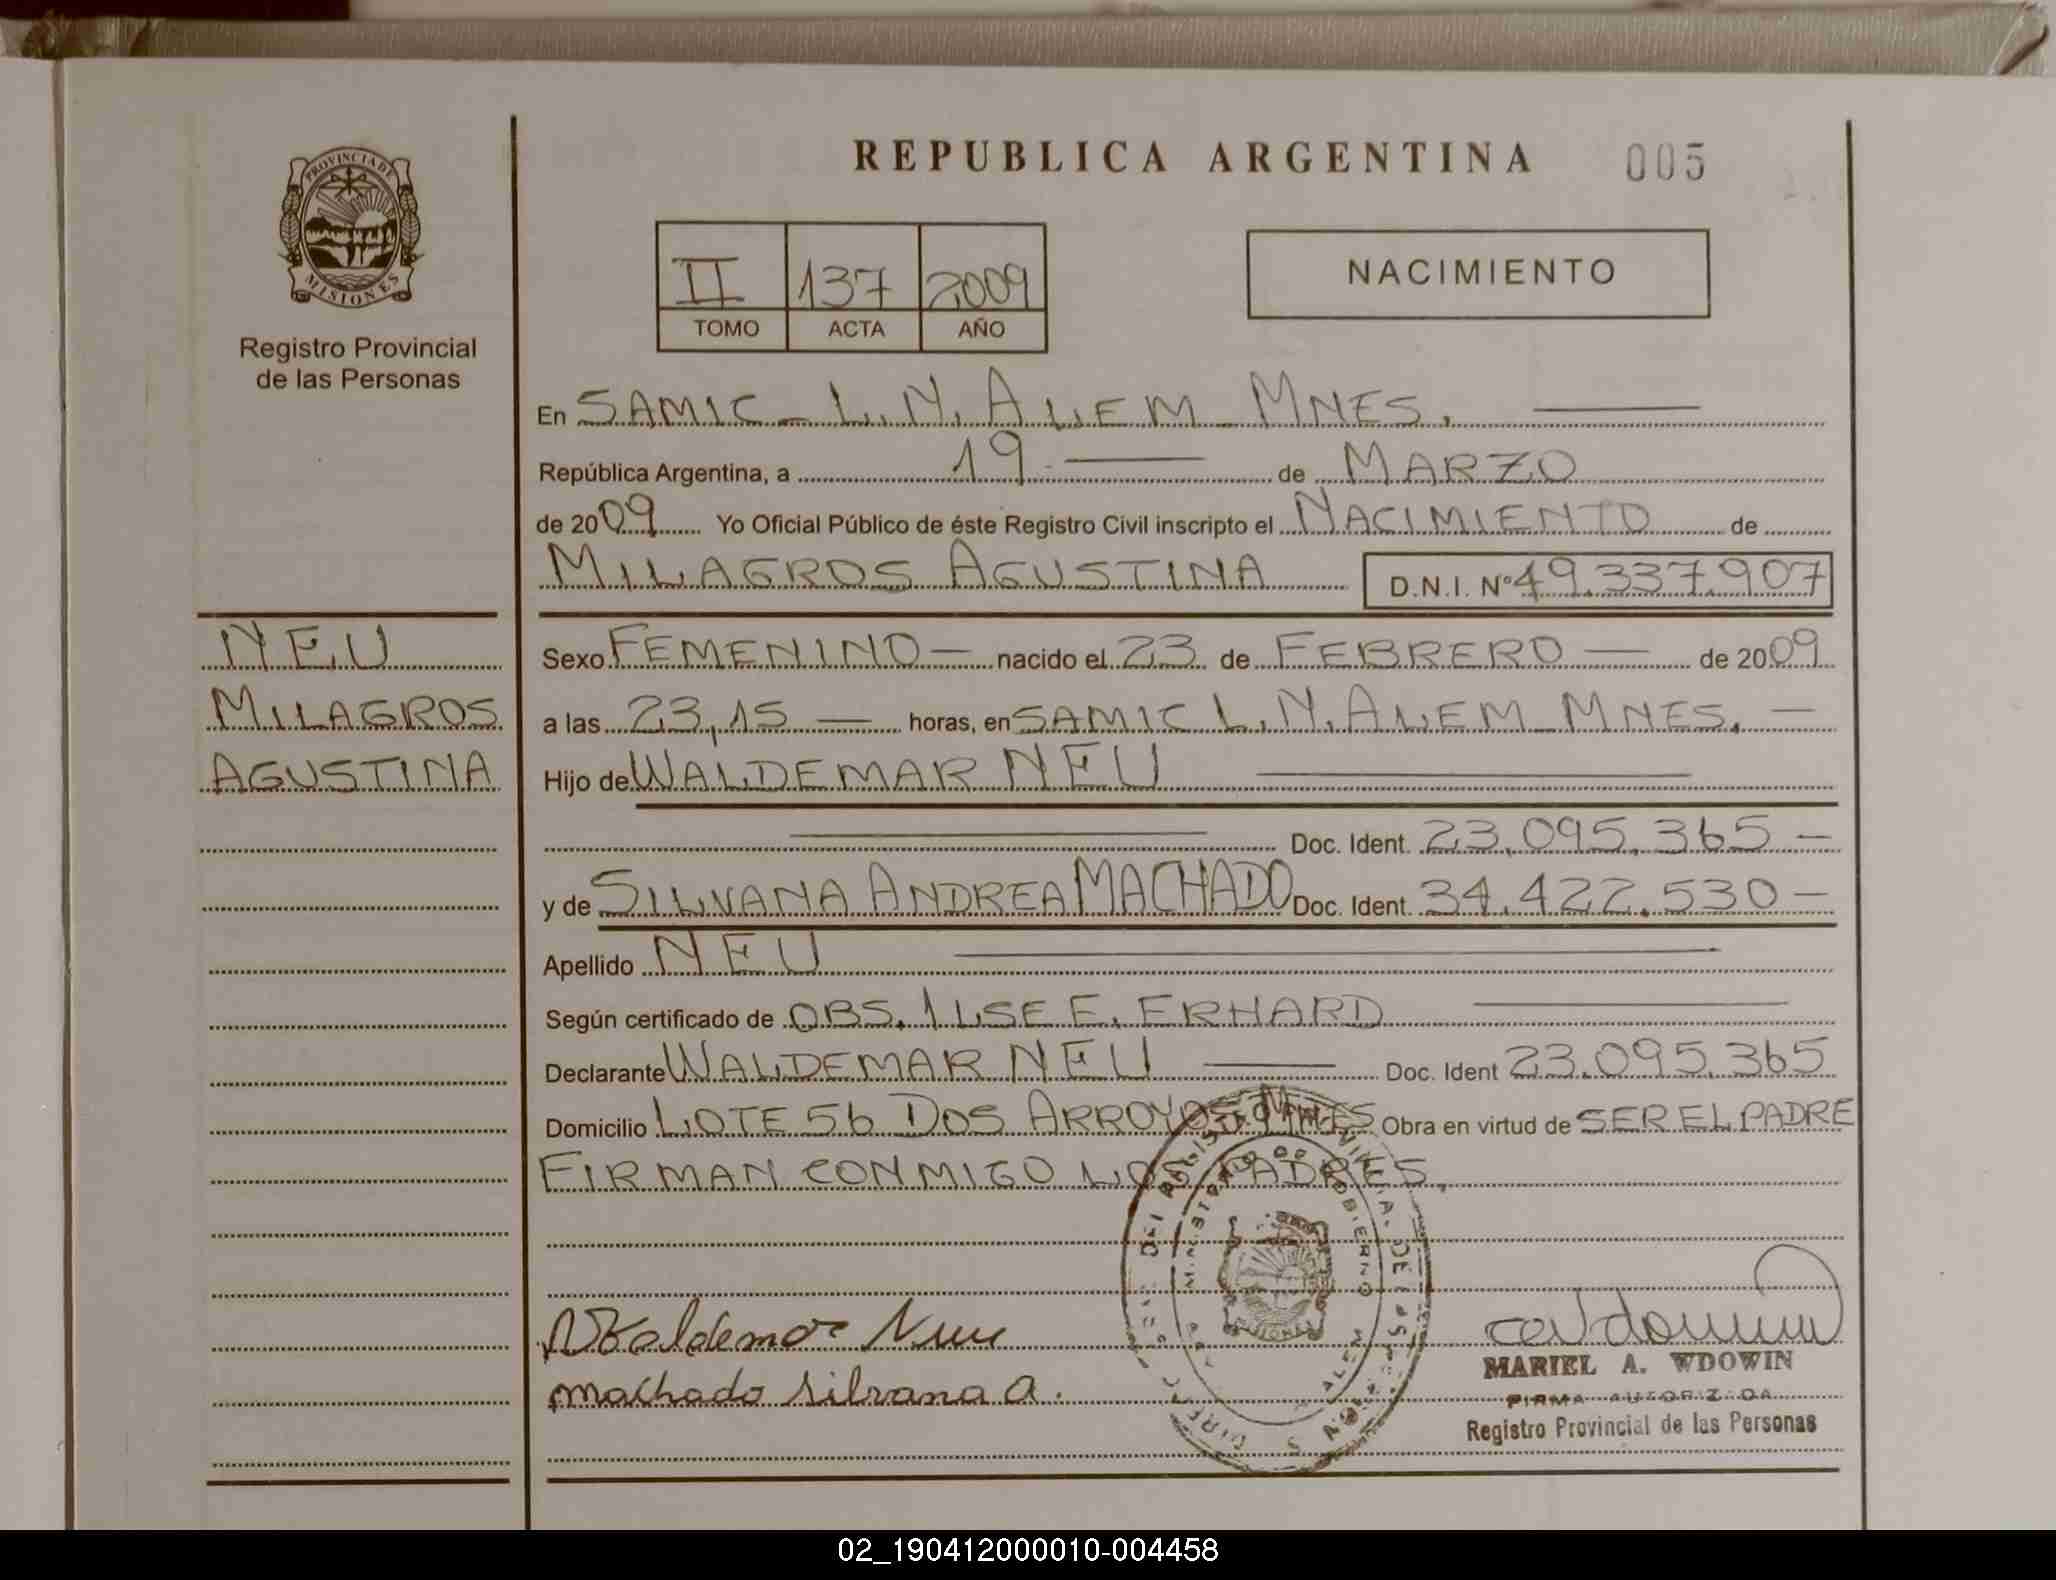 REPUBLICA ARGENTINA 005
PROVINCIA DE
MISIONES
Registro Provincial
de las Personas
II 137 2009
TOMO ACTA AÑO
NACIMIENTO
En SAMIC - L.N. ALEM - MNES.
República Argentina, a 19 de MARZO
de 2009 Yo Oficial Público de éste Registro Civil inscripto el NACIMIENTO de
MILAGROS AGUSTINA D.N.I. Nº 49.337.907
NEU
MILAGROS
AGUSTINA
Sexo FEMENINO — nacido el 23 de FEBRERO — de 2009
a las 23,15 — horas, en SAMIC L.N. ALEM - MNES. —
Hijo de WALDEMAR NEU
Doc. Ident. 23.095.365 —
y de SILVANA ANDREA MACHADO Doc. Ident. 34.422.530 —
Apellido NEU
Según certificado de OBS. ILSE E. ERHARD
Declarante WALDEMAR NEU — Doc. Ident 23.095.365
Domicilio LOTE 56 DOS ARROYOS MNES Obra en virtud de SER EL PADRE
FIRMAN CONMIGO LOS PADRES.
Waldemar Neu
machado silvana a.
MARIEL A. WDOWIN
FIRMA AUTORIZADA
Registro Provincial de las Personas
02_190412000010-004458